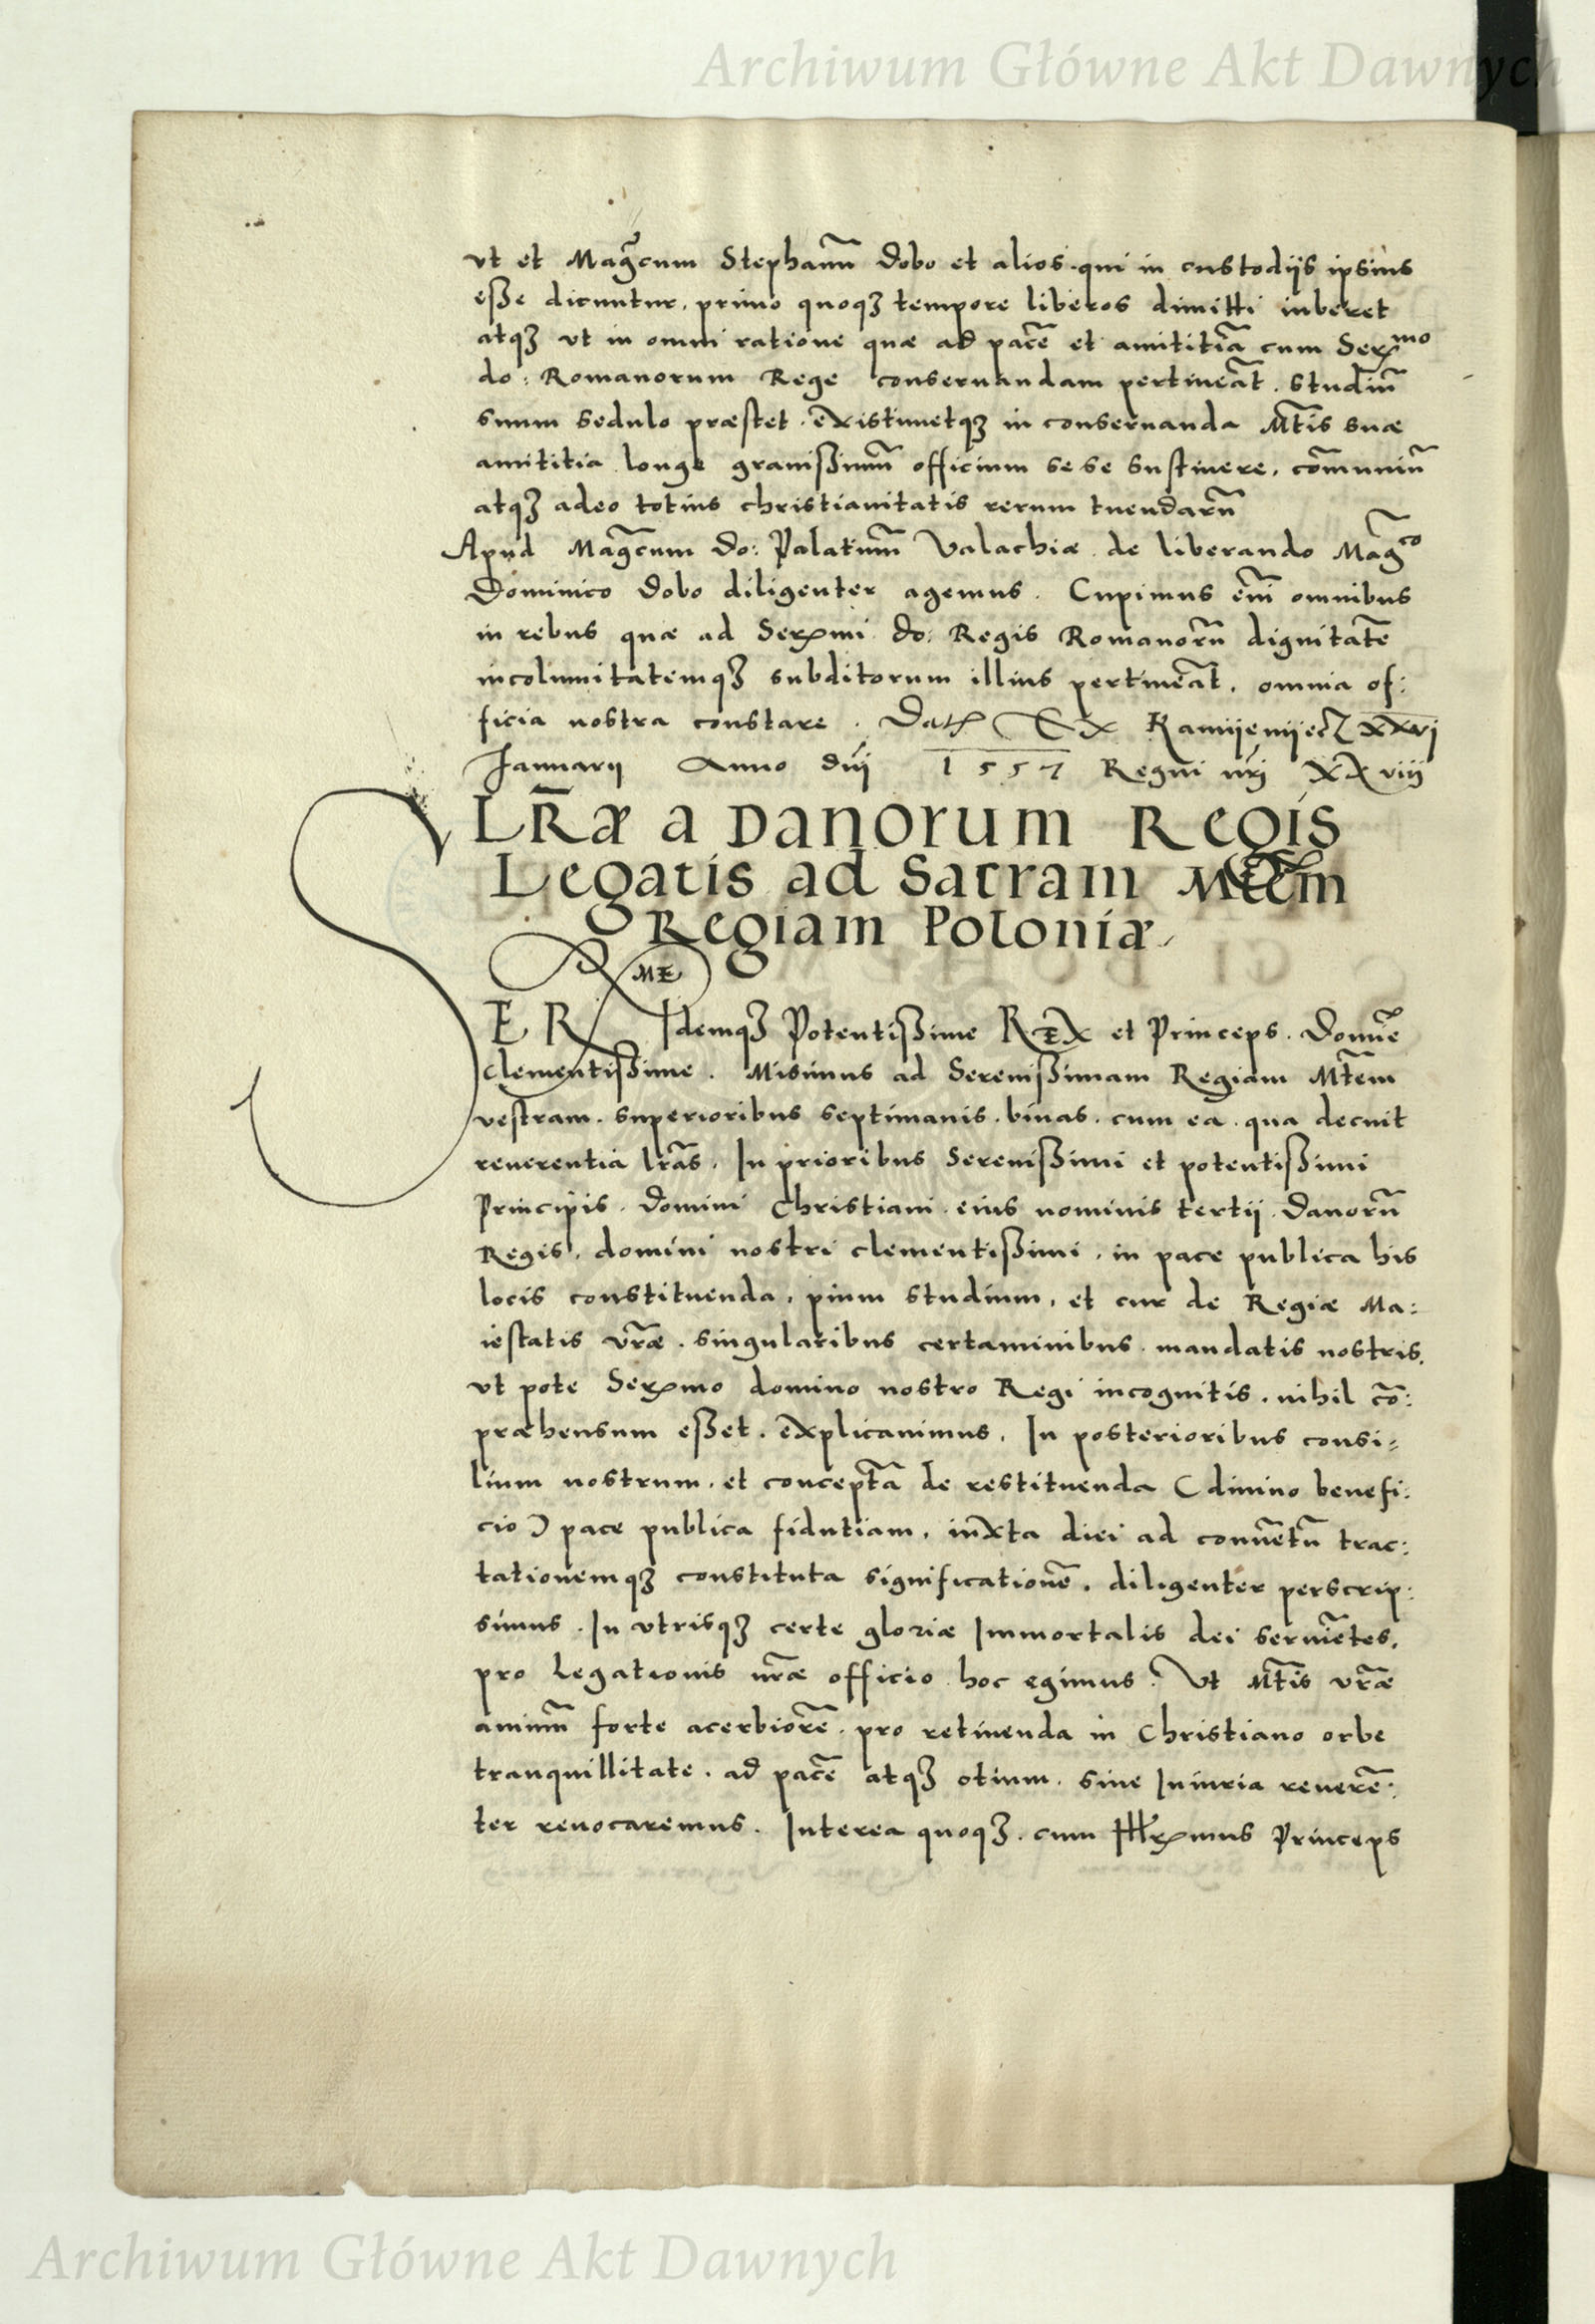 Archiwum Główne Akt Dawnych
vt et Magc̃um Stephanũ Dobo et alios qui in custodijs ipsius
eße dicuntur, primo quoqꝫ tempore liberos dimitti iuberet
atqꝫ vt in omni ratione quæ ad pacẽ et amititiã cum Serꝫmo
do: Romanorum Rege conseruandam pertineãt. studiũ
suum sedulo præstet. existimetqꝫ in conseruanda Mt̃is suæ
amititia longe grauißimũ officium se se sustinere, com̃uniũ
atqꝫ adeo totius christianitatis rerum tuendarũ
Apud Magc̃um Do: Palatinũ Valachiæ de liberando Mag̃co
Dominico Dobo diligenter agemus. Cupimus em̃ omnibus
in rebus quæ ad Serꝫmi do: Regis Romanorũ dignitatẽ
incolumitatemqꝫ subditorum illius pertineãt, omnia of:
ficia nostra constare. Datꝫ Ex xxvj
Januarij Anno dñi 1557 Regni nr̃i XXviij
LR̃æ a Danorum Regis
Legatis ad Sacram Mt̃em
Regiam Poloniæ
SER ME Idemqꝫ Potentißime REX et Princeps. Domĩe
clementißime. Misimus ad Serenißimam Regiam Mt̃em
vestram. superioribus septimanis. binas. cum ea. qua decuit
reuerentia lr̃as. In prioribus Serenißimi et potentißimi
Principis. Domini Christiani. eius nominis tertij. Danorũ
Regis, domini nostri clementißimi, in pace publica his
locis constituenda, pium studium, et cur de Regiæ Ma:
iestatis vr̃æ. singularibus certaminibus. mandatis nostris,
vt pote Serꝫmo domino nostro Regi incognitis. nihil cõ:
præhensum eßet. explicauimus. In posterioribus consi:
lium nostrum. et concept̃a de restituenda (diuino benefi:
cio) pace publica fidutiam, iuxta diei ad conuẽtũ trac:
tationemqꝫ constituta significationẽ. diligenter perscrip:
simus. In vtrisqꝫ certe gloriæ Immortalis dei seruiẽtes,
pro legationis nr̃æ officio hoc egimus. Vt Mt̃is vr̃æ
animũ forte acerbiorẽ. pro retinenda in Christiano orbe
tranquillitate. ad pacẽ atqꝫ otium. sine Iniuria reuerẽ:
ter reuocaremus. Interea quoqꝫ. cum Illꝫmus Princeps
Archiwum Główne Akt Dawnych